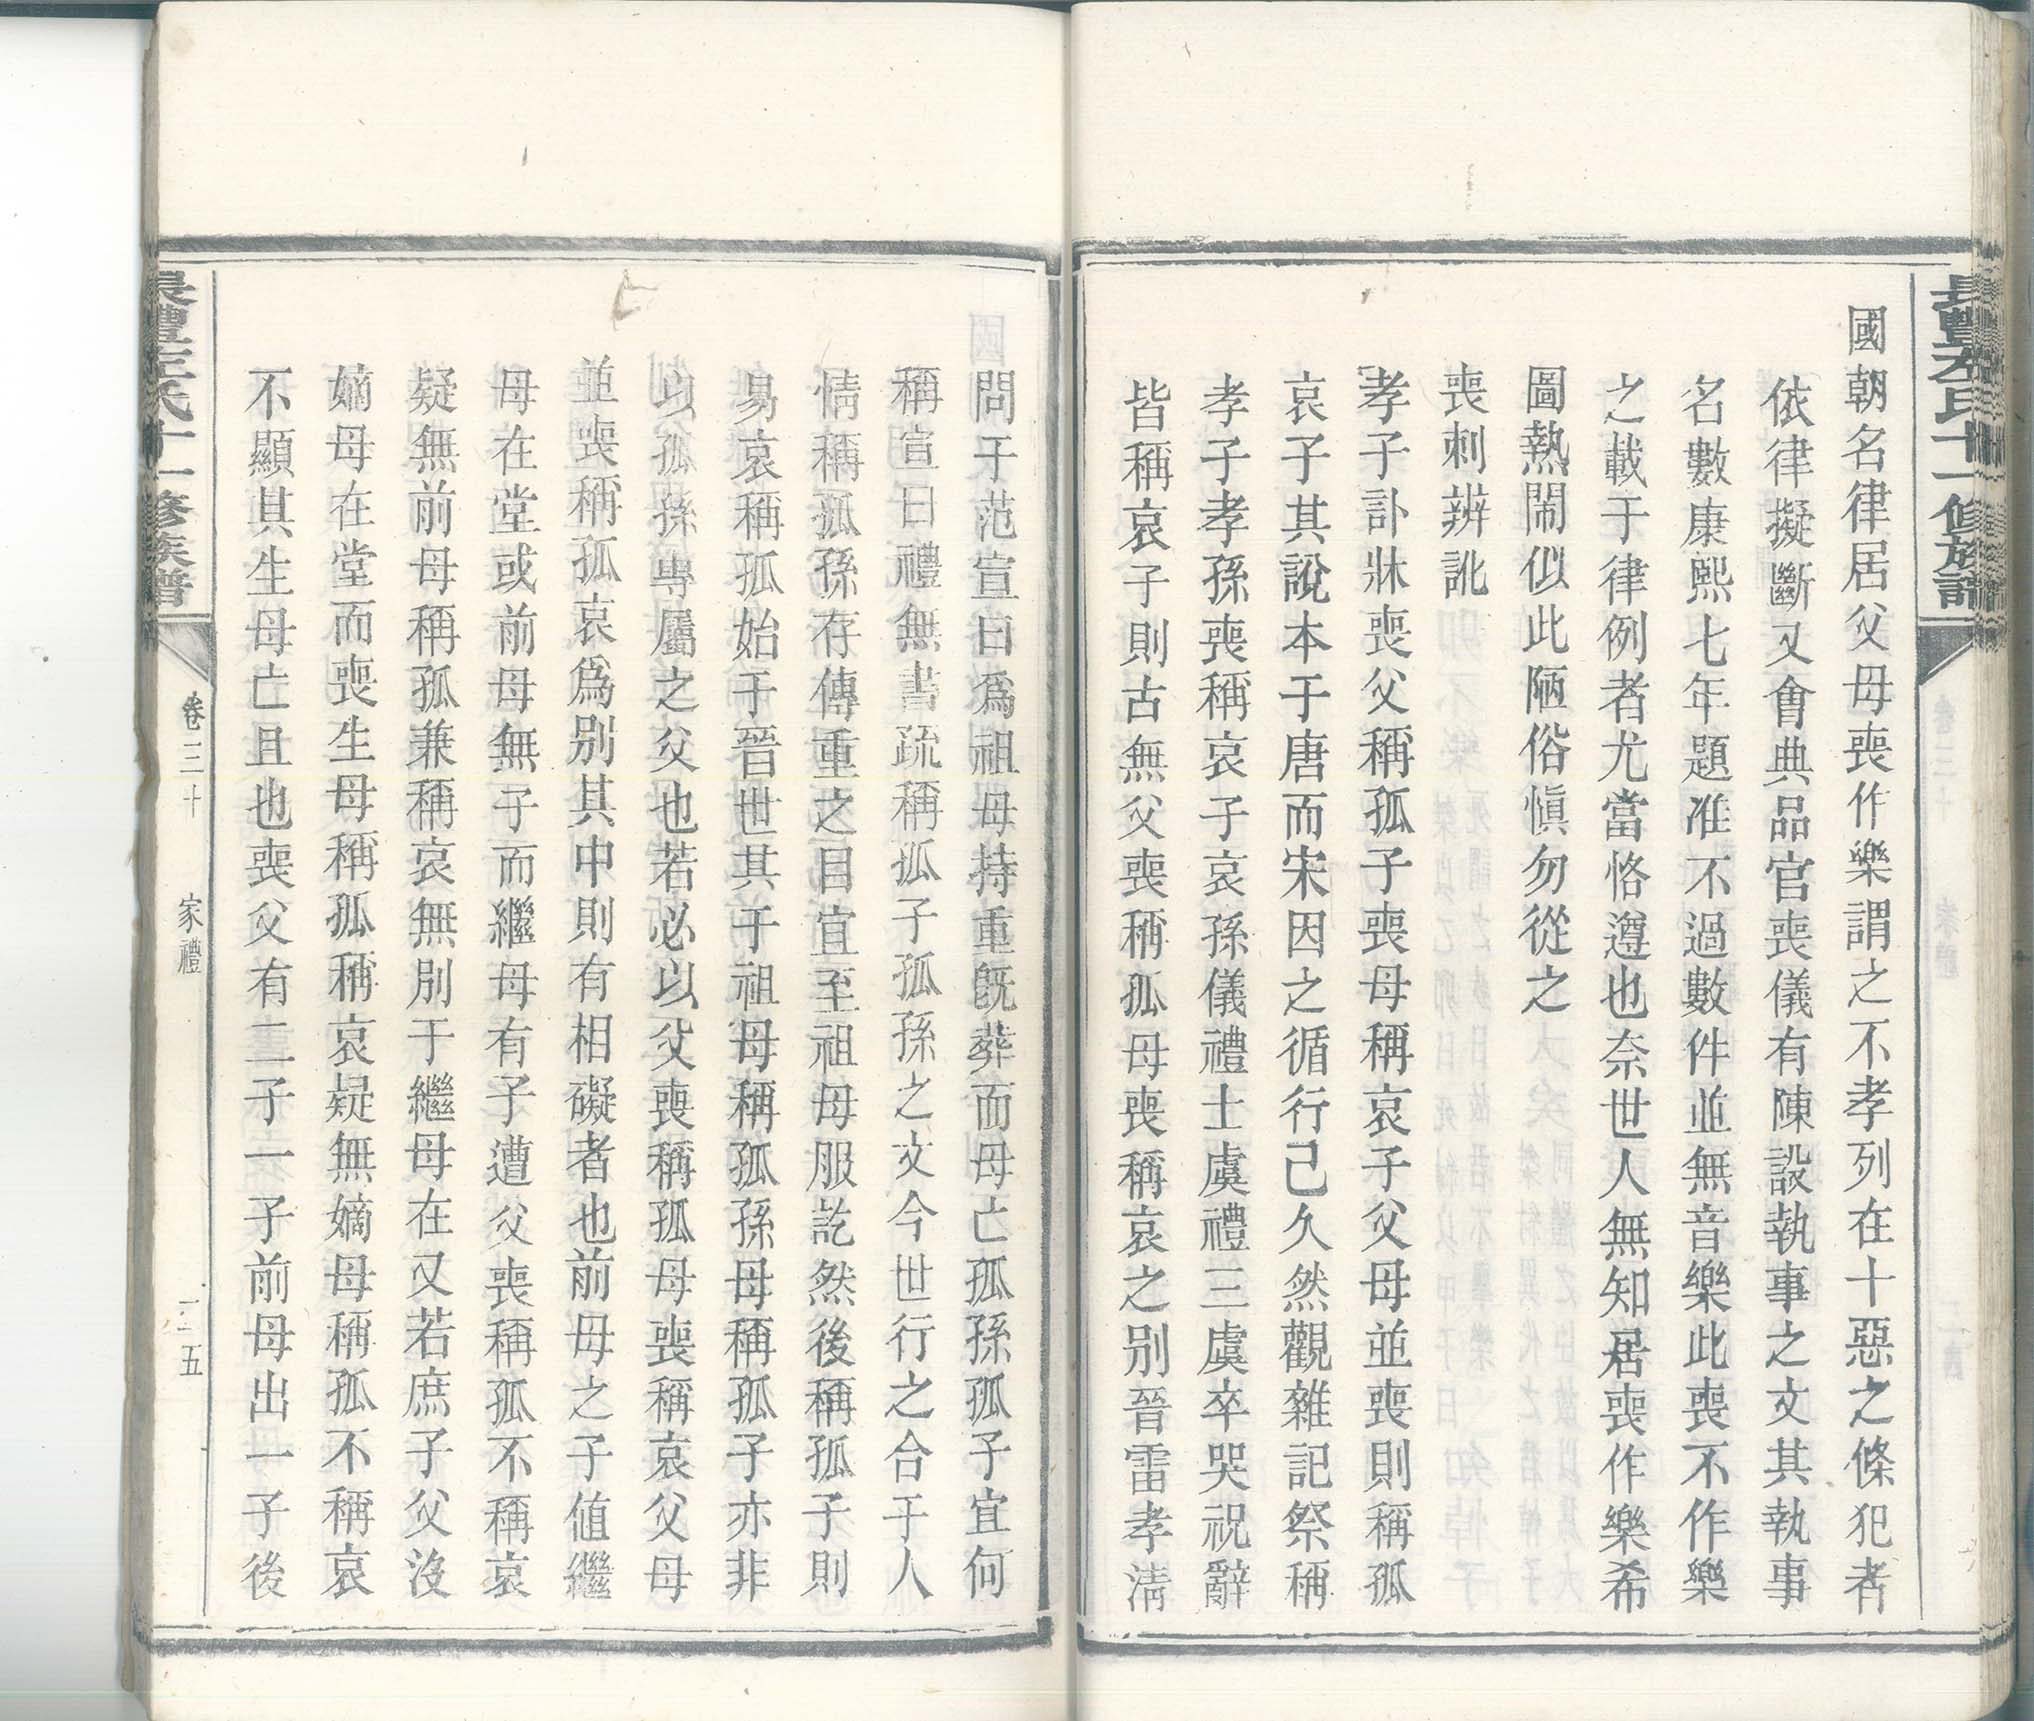 國朝名律居父母喪作樂謂之不孝列在十惡之條犯者
依律擬斷又會典品官喪儀有陳設執事之文其執事
名數康熙七年題准不過數件並無音樂此喪不作樂
之載于律例者尤當恪遵也奈世人無知居喪作樂希
圖熱鬧似此陋俗愼勿從之
喪刺辨訛
孝子訃牀喪父稱孤子喪母稱哀子父母並喪則稱孤
哀子其說本于唐而宋因之循行己久然觀雜記祭稱
孝子孝孫喪稱哀子哀孫儀禮士虞禮三虞卒哭祝辭
皆稱哀子則古無父喪稱孤母喪稱哀之別晉雷孝淸
問于范宣曰爲祖母持重旣葬而母亡孤孫孤子宜何
稱宣曰禮無書疏稱孤子孤孫之文今世行之合于人
情稱孤孫存傳重之目宜至祖母服訖然後稱孤子則
易哀稱孤始于晉世其于祖母稱孤孫母稱孤子亦非
以孤孫專屬之父也若必以父喪稱孤母喪稱哀父母
並喪稱孤哀爲別其中則有相礙者也前母之子値繼
母在堂或前母無子而繼母有子遭父喪稱孤不稱哀
疑無前母稱孤兼稱哀無別于繼母在又若庶子父沒
嫡母在堂而喪生母稱孤稱哀疑無嫡母稱孤不稱哀
不顯其生母亡且也喪父有二子一子前母出一子後
長豐左氏十一修族譜
卷三十
家禮
二五